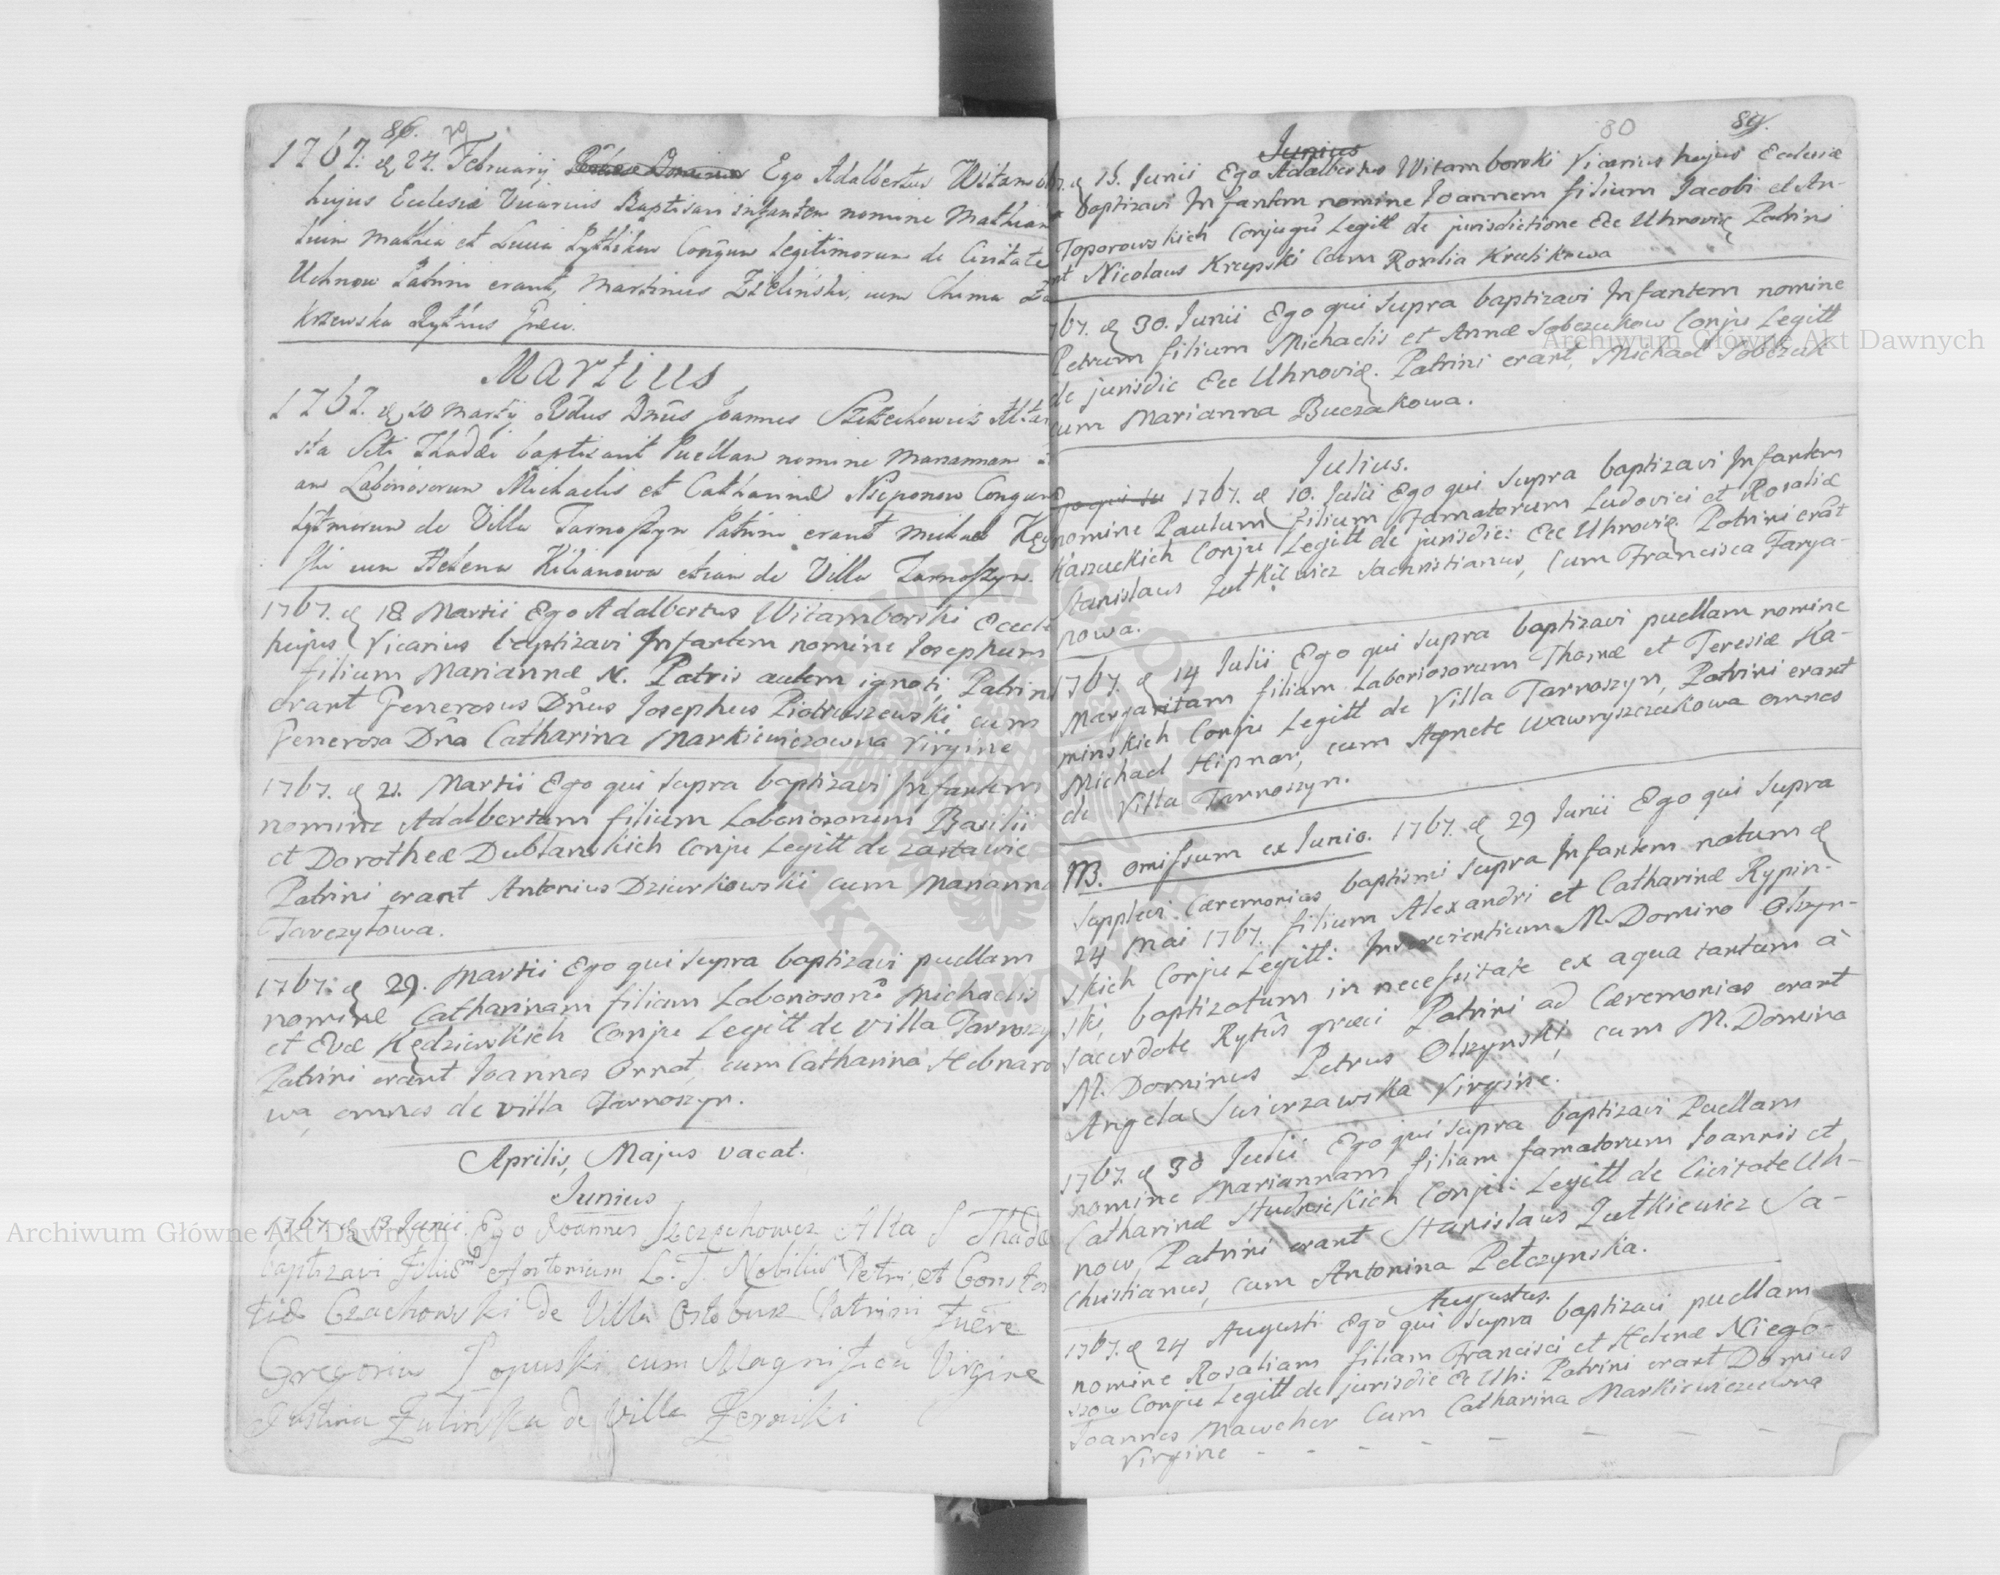 86. 79
1767. d 24. February Ego Adalbertus Witambor
hujus Eclesiæ Vicarius Baptisavi infantem nomine Mathiam
lium Mathia et Lucia Conjgum Legitimorum de Civitate
Uchnow Patrini erant, Martinus Zieliński, cum Chima
Krzewska Rythus Græci.
Martius
1767. d 10 Martij Rdus Dnus Joannes Szczechowicz Altari
sta Scti Thadæi baptisavit Puellam nomine Mariannam
am Laboriosorum Michaelis et Catharinæ Nieponow Congum
Lgtmorum de Villa Tarnoszyn Patrini erant Michael
ski cum Helena Kilianowa etiam de Villa Tarnoszyn.
1767. d 18 Martii Ego Adalbertus Witamborski Eccle
hujus Vicarius baptizavi Infantem nomine Josephum
filium Mariannæ N. Patris autem ignoti, Patrini
erant Generosus Dnus Josephus Piotruszewski cum
Generosa Dna Catharina Markiewiczowna Virgine
1767. d 21. Martii Ego qui supra baptizavi Infantem
nomine Adalbertum filium Laboriosorum Basilii
et Dorotheæ Dublanskich Conju Legitt de zastawie
Patrini erant Antonius Dziurkowski cum Marianna
Tarczytowa.
1767. d 29. Martii Ego qui supra baptizavi puellam
nomine Catharinam filiam Laboriosorū Michaelis
et Evæ Kędziewskich Conju Legitt de villa Tarnoszy
Patrini erant Joannes Ornat, cum Catharina Hebnaro
wa, omnes de villa Tarnoszyn.
Aprilis, Majus vacat.
Junius
1767. d 13 Junii Ego Joannes Szczechowicz Alta S Thadæ
baptizavi Filium L. T. Nobilium Petri et Constan
tiæ Czachowski de Villa Patrini Fuere
Gregorius Łopuski cum Magnifica Virgine
Justina Żulinska de Villa Żerniki
80 87.
Junius
d 15. Junii Ego Adalbertus Witamborski Vicarius hujus Ecclesiæ
baptizavi Infantem nomine Joannem filium Jacobi et An-
Toporowskich Conjugū Legitt de jurisdictione Ecc Uhnoviē Patrini
nt Nicolaus Krupski Cum Rosalia Krulikowa
1767. d 30. Junii Ego qui supra baptizavi Infantem nomine
Petrum filium Michaelis et Annæ Sobczukow Conju Legitt
de jurisdic Ecc Uhnoviæ. Patrini erant, Michael Sobczak
cum Marianna Buczakowa.
Julius.
1767. d 10. Julii Ego qui supra baptizavi Infantem
nomine Paulum filium famatorum Ludovici et Rosaliæ
Kaszuckich Conju Legitt de jurisdic: Ecc Uhnoviē Patrini erāt
Stanislaus Zutkiewicz Sachristianus, Cum Francisca Farya-
nowa.
1767. d 14 Julii Ego qui supra baptizavi puellam nomine
Margaritam filiam Laboriosorum Thomæ et Teresiæ Ka-
minskich Conju Legitt de Villa Tarnoszyn, Patrini erant
Michael Hipnar, cum Agnete Wawryszczukowa omnes
de Villa Tarnoszyn.
NB. omissum ex Junio. 1767. d 29 Junii Ego qui supra
supplevi Cæremonias baptismi supra Infantem natum d
24 Mai 1767. filium Alexandri et Catharinæ Rypin-
skich Conju Legitt: M. Domino Olszyn-
ski, baptizatum in necessitate ex aqua tantum à
Sacerdote Rytûs græci Patrini ad Cæremonias erant
M. Dominus Petrus Olszynski, cum M. Domina
Angela Swierzawska Virgine.
1767. d 30 Julii Ego qui supra baptizavi Puellam
nomine Mariannam filiam famatorum Joannis et
Catharinæ Studnickich Conju: Legitt de Civitate Uh-
now, Patrini erant Stanislaus Zutkiewicz Sa-
christianus, cum Antonina Pełczynska.
Augustus.
1767. d 24 Augusti Ego qui supra baptizavi puellam
nomine Rosaliam filiam Francisci et Helenæ Niego-
szow Conju Legitt de jurisdic Ec Uh: Patrini erant Dominus
Joannes Mawcher Cum Catharina Markiewiczowna
Virgine - - - - - - -
Archiwum Główne Akt Dawnych
Archiwum Główne Akt Dawnych
ARCHIWUM GŁÓWNE AKT DAWNYCH